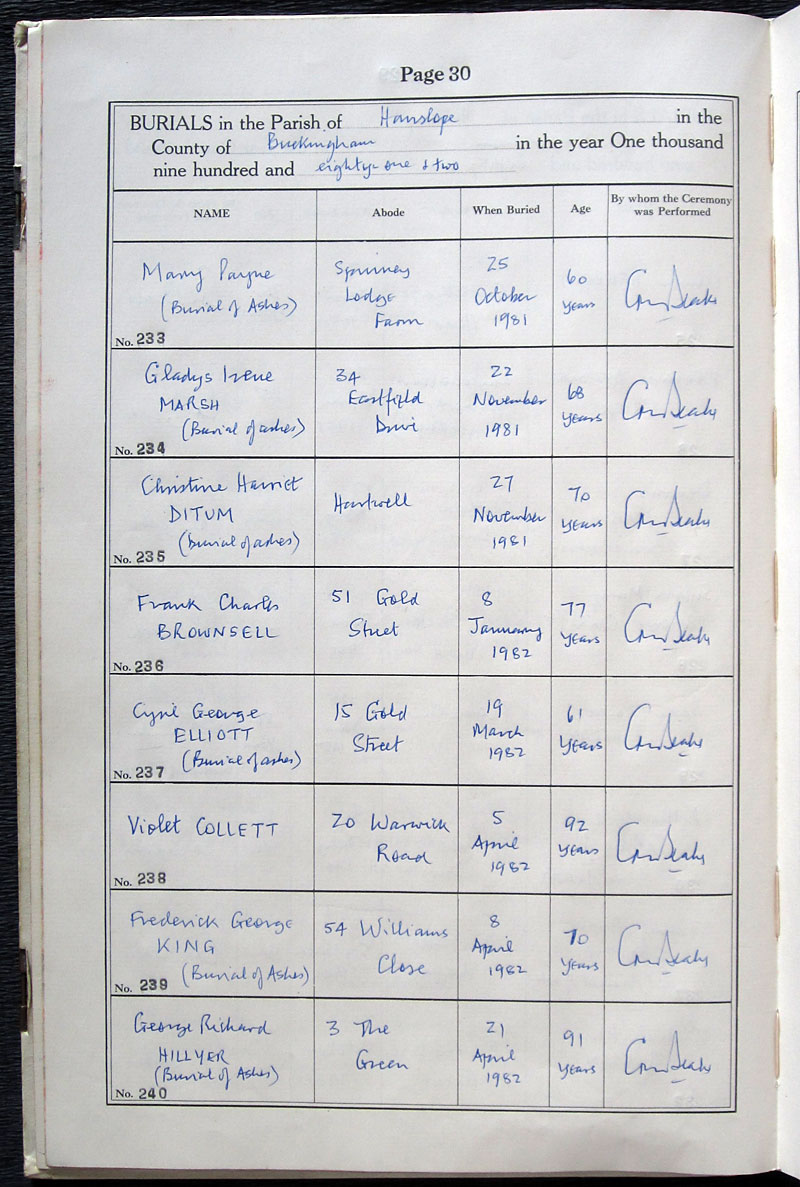 Page 30
BURIALS in the Parish of Hanslope in the
County of Buckingham in the year One thousand
nine hundred and eighty-one & two
NAME Abode When Buried Age By whom the Ceremony was Performed
Mary Payne
(Burial of Ashes)
No. 233
Spinney
Lodge
Farm
25
October
1981
60
years
Gladys Irene
MARSH
(Burial of ashes)
No. 234
34
Eastfield
Drive
22
November
1981
68
years
Christine Harriet
DITUM
(Burial of ashes)
No. 235
Hartwell
27
November
1981
70
years
Frank Charles
BROWNSELL
No. 236
51 Gold
Street
8
January
1982
77
years
Cyril George
ELLIOTT
(Burial of ashes)
No. 237
15 Gold
Street
19
March
1982
61
years
Violet COLLETT
No. 238
20 Warwick
Road
5
April
1982
92
years
Frederick George
KING
(Burial of Ashes)
No. 239
54 Williams
Close
8
April
1982
70
years
George Richard
HILLYER
(Burial of Ashes)
No. 240
3 The
Green
21
April
1982
91
years